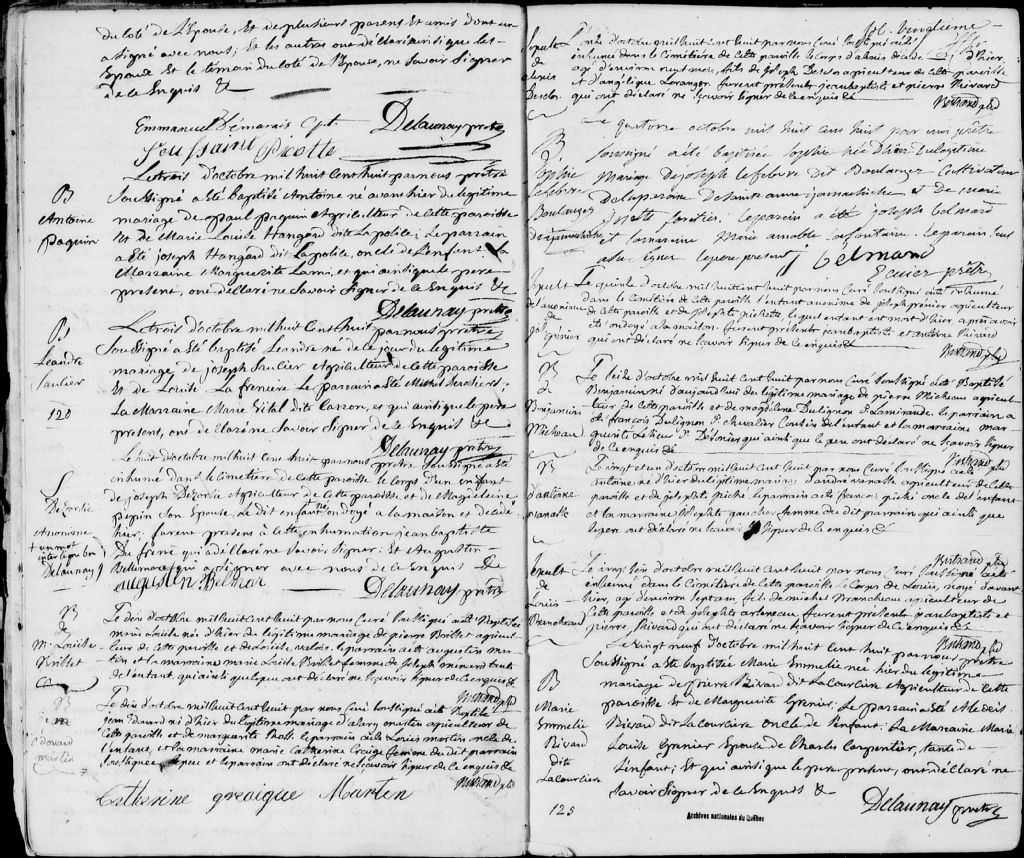 du Coté de L'Epouse, Et de plusieurs parens Et amis dont un
a Signé avec nous; Et les autres ont déclaré ainsi que les
Epoux Et le témoin du Coté de l'Epouse, ne Savoir Signer
de ce Enquis &
Emmanuel Démarais Cpt. Delaunay ptre
Toussaint Picotte
B
Antoine
Paquin
Le trois d'octobre mil huit Cent huit par nous prêtre
Soussigné a Eté baptisé Antoine né avanthier du legitime
mariage de Paul Paquin Agriculteur de Cette paroisse
Et de Marie Louise Hangard dit Lapolice; Le parrain
a Eté Joseph Hangard dit Lapolice, oncle de l'enfant. La
Marraine Marguerite Lami, et qui ainsi que le pere
present, ont déclaré ne Savoir Signer de ce Enquis &
Delaunay prêtre
B
Leandre
Saulier
120
Le trois d'octobre mil huit Cent huit par nous prêtre
Soussigné a Eté baptisé Leandre né de ce jour du legitime
mariage de joseph Saulier Agriculteur de Cette paroisse
Et de Louise La freniere Le parrain a Eté Michel
La Marraine Marie Vital dite Carron, et qui ainsi que le pere
present, ont déclaré ne Savoir Signer de ce Enquis &
Delaunay prêtre
S
Anonime
+ un mot
interligne bon
Delaunay
Le huit d'octobre mil huit Cent huit par nous prêtre Soussigné a Eté
inhumé dans le Cimetiere de Cette paroisse le Corps d'un enfant
de joseph Agriculteur de Cette paroisse et de Magdeleine
pepin Son Epouse, Le dit enfant ondoyé a la maison et décedé
hier, furent present à Cette inhumation jean baptiste
Du frène qui a déclaré ne Savoir Signer: Et Augustin
Bellemare qui a Signer avec nous de ce Enquis &
augustin Belmar Delaunay prêtre
B
de
M. Louise
Brillet
Le dix d'octobre mil huit Cent huit par nous Curé Soussigné a été Baptisée
marie Louise née d'hier du légitime mariage de pierre Brillet agricul-
teur de Cette paroisse et de Louise valois. le parrain a été augustin mar-
tin et la marraine marie Louise Brillet femme de Joseph tante
de l'enfant, qui ainsi que le pere ont déclaré ne Sçavoir Signer de ce enquis &
Bertrand ptre
B
Edouard
martin
Le dix d'octobre mil huit Cent huit par nous Curé Soussigné a été Baptisé
jean Edouard né d'hier du legitime mariage d'alexy martin agriculteur de
Cette paroisse et de marguerite le parrain a été Louis martin oncle de
l'enfant, et la marraine marie Catherine Craige femme du dit parrain
Soussignée le pere et le parrain ont déclaré ne Sçavoir Signer de ce enquis &
Bertrand ptre
Catherine greaigue Martin
fol. vingtieme
Sepult
de
alexis
L'onze d'octobre mil huit Cent huit par nous Curé Soussigné a été
inhumé dans le Cimetiere de Cette paroisse le Corps d'alexis décédé d'hier,
agé d'environ onze mois, fils de Joseph agriculteur de Cette paroisse
et d'angélique Loranger. furent présents jean baptiste et pierre Rivard
qui ont déclaré ne Sçavoir Signer de ce enquis &
Bertrand ptre
B
Sophie
Lefebvre
Boulanger
D'yamachiche
Le quatorze octobre mil huit cent huit par moi prêtre
Soussigné a été baptisée Sophie née D'hier Du légitime
Mariage De joseph lefebvre dit Boulanger Cultivateur
De la paroisse De Sainte anne yamachiche et De marie
le parrain a été joseph belmard
et la marraine Marie amable Lafontaine. le parrain Seul
a Su Signer le pere present j belmard
prêtre
Sepult
de l'anonime
de
Jos. Grénier
Le quinze d'octobre mil huit Cent huit par nous Curé Soussigné a été inhumé
dans le Cimetiere de Cette paroisse l'enfant anonime de joseph grénier agriculteur
de Cette paroisse et de josephte pichette, le quel enfant est mort d'hier, après avoir
été ondoyé a la maison. furent présents jean baptiste et antoine Rivard
qui ont déclaré ne Sçavoir Signer de ce enquis &
Bertrand ptre
B
de
Benjamin
Micheau
Le Seize d'octobre mil huit Cent huit par nous Curé Soussigné a été Baptisé
Benjamin né d'aujourd'hui du legitime mariage de pierre Micheau agricul-
teur de Cette paroisse et de magdeleine Dulignon D. Lamirande. le parrain a
été françois Dulignon D. chevalier Cousin de l'enfant et la marraine mar-
guerite qui ainsi que le pere ont déclaré ne Sçavoir Signer
de ce enquis &
Bertrand ptre
B
d'antoine
vanasse
Le vingt et un d'octobre mil huit Cent huit par nous Curé Soussigné a été Baptisé
antoine né d'hier du légitime mariage d'andré vanasse agriculteur de Cette
paroisse et de josephte piché. le parrain a été françois piché oncle de l'enfant
et la marraine josephte gaucher femme du dit parrain qui ainsi que
le pere ont déclaré ne Sçavoir Signer de ce enquis &
Bertrand ptre
Sepult
de
Louis
Brancheaud
Le vingt Six d'octobre mil huit Cent huit par nous Curé Soussigné a été
inhumé dans le Cimetiere de Cette paroisse le Corps de Louis, noyé d'avant
hier, agé d'environ Sept ans, fils de michel Brancheau agriculteur de
Cette paroisse et de josephte furent présents jean baptiste et
pierre Rivard qui ont déclaré ne Sçavoir Signer de ce enquis &
Bertrand ptre
B
Marie
Emmelie
Rivard
dite
Lacourciere
125
Le vingt neuf d'octobre mil huit Cent huit par nous prêtre
Soussigné a Eté Baptisée Marie Emmelie née hier du legitime
mariage de pierre Rivard dit La Courciere Agriculteur de Cette
paroisse Et de Marguerite Grenier; Le parrain a Eté Alexis
Rivard dit La Courciere oncle de l'enfant: La Marraine Marie
Louise Grenier Epouse de Charles Carpentier, tante de
L'enfant; Et qui ainsi que le pere present, ont déclaré ne
Savoir Signer de ce Enquis &
Delaunay prêtre
Archives nationales du Québec